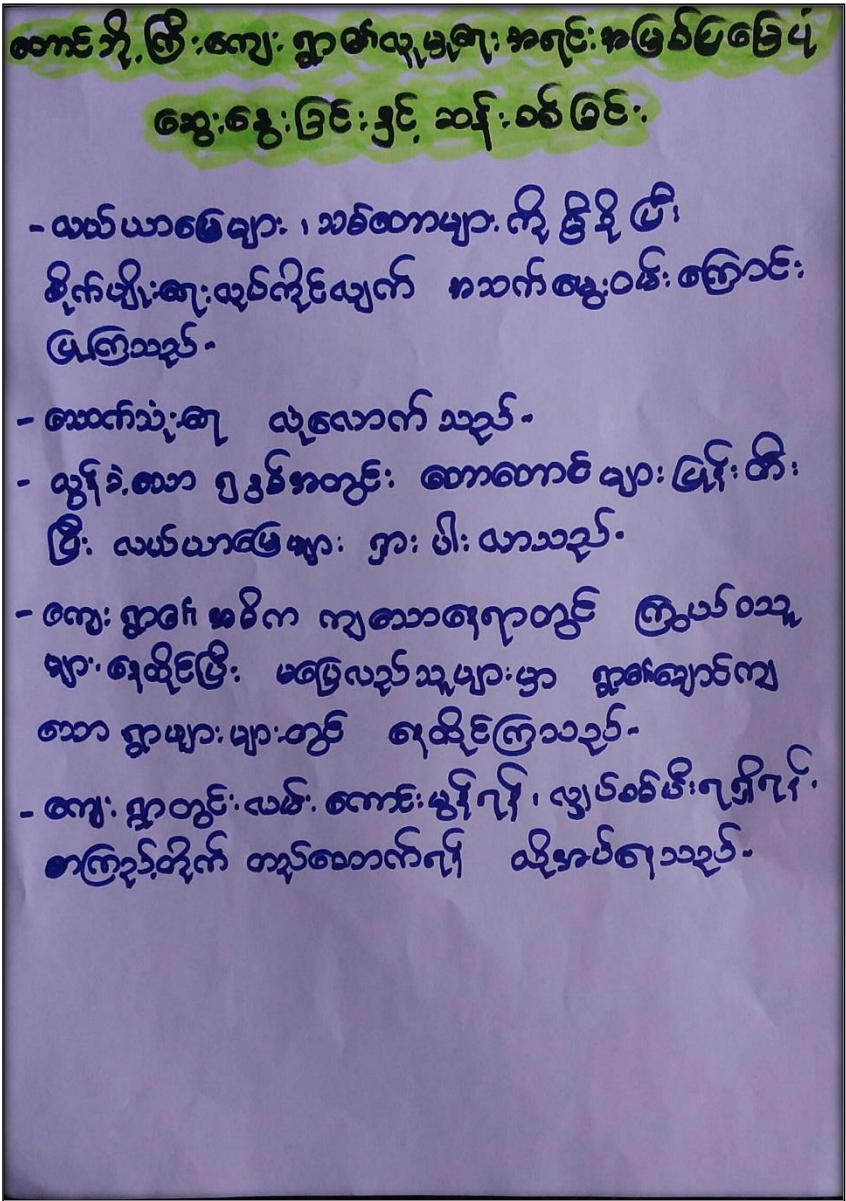 တောင်ဘို့ကြီးကျေးရွာ၏လူမှုရေးအရင်းအမြစ်ပြမြေပုံ
ဆွေးနွေးခြင်းနှင့် ဆန်းစစ်ခြင်း
- လယ်ယာမြေများ ၊ သစ်တောများ ကို မှီခို ပြီး
စိုက်ပျိုးရေးလုပ်ကိုင်လျှက် အသက်မွေးဝမ်းကြောင်း
ပြုကြသည်-
- သောက်သုံးရေ လုံလောက် သည်-
- လွန်ခဲ့သော ၅ နှစ်အတွင်း တောတောင် များ ပြုန်းတီး
ပြီး လယ်ယာမြေများ ရှား ပါး လာသည်-
- ကျေးရွာ၏ အဓိက ကျသောနေရာတွင် ကြွယ်ဝသူ
များ နေထိုင်ပြီး မပြေလည်သူများမှာ ရွာ၏ချောင်ကျ
သော ရွာဖျားများတွင် နေထိုင်ကြသည်-
- ကျေးရွာတွင်း လမ်း ကောင်းမွန်ရန် ၊ လျှပ်စစ်မီးရရှိရန်
စာကြည့်တိုက် တည်ဆောက်ရန် လိုအပ်နေသည်-